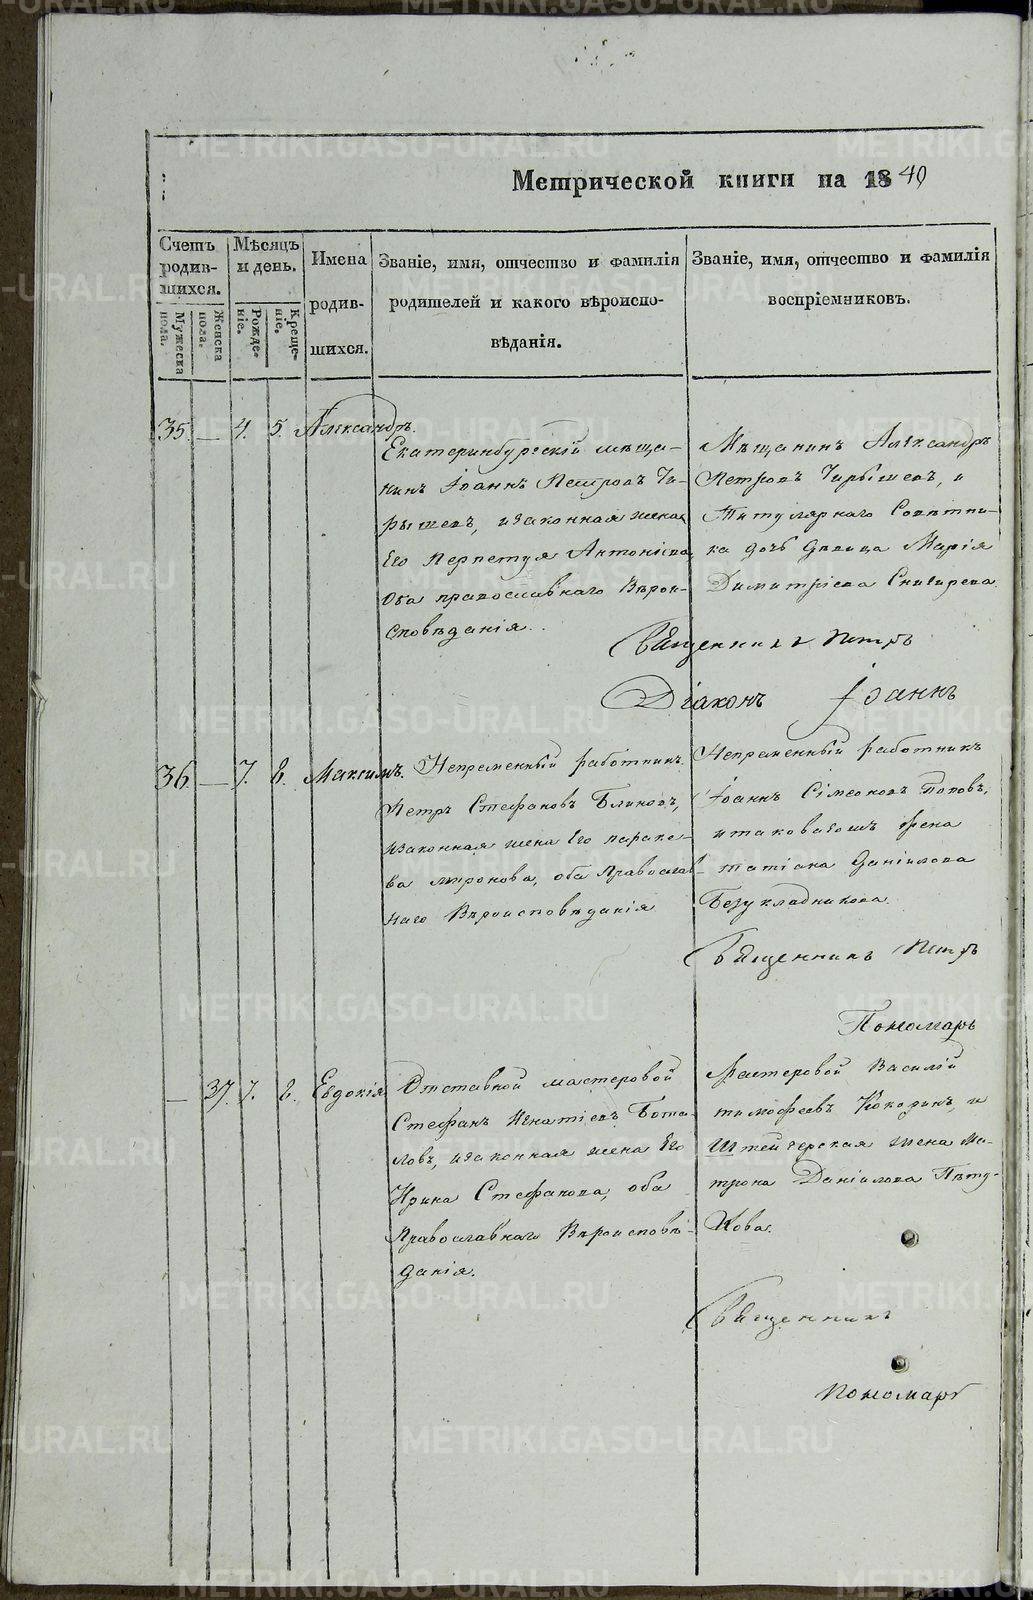 METRIKI.GASO-URAL.RU
Метрической книги на 1840
Счетъ родив-шихся.
Мужеска пола.
Женска пола.
Мѣсяцъ и день.
Рожде-ніе.
Креще-ніе.
Имена родив-шихся.
Званіе, имя, отчество и фамилія родителей и какого вѣроиспо-вѣданія.
Званіе, имя, отчество и фамилія воспріемниковъ.
35. — 4. 5. Александръ.
Екатеринбургскій мѣща-
нинъ Іоаннъ Петровъ Чи-
рышевъ, изаконная жена
Его Перпетуя Антоніева,
Оба православнаго Вѣрои-
сповѣданія.
Мѣщанинъ Александръ
Петровъ Чирышевъ, и
Титулярнаго Совѣтни-
ка дочь Дѣвица Марія
Димитріева Снигирева
Священникъ Петръ
Діаконъ Іоаннъ
36. — 7. 8. Максимъ.
Непремѣнный работникъ
Петръ Стефановъ Блиновъ,
изаконная жена Его параке-
ва миронова, оба Православ-
наго Вѣроисповѣданія
Непремѣнный работникъ
Іоаннъ Сімеоновъ Поповъ,
итаковагожъ жена
татіана Даніилова
Безукладникова.
Священникъ Петръ
Пономарь
— 37. 7. 8. Евдокія
Отставной мастеровой
Стефанъ Игнатіевъ Бота-
ловъ, изаконная жена Его
Ирина Стефанова, оба
Православнаго Вѣроисповѣ-
данія.
Мастеровой Василій
тимофеевъ Кокоринъ, и
Штейгерская жена Ма-
трона Даніилова Пѣту-
хова.
Священникъ
Пономарь